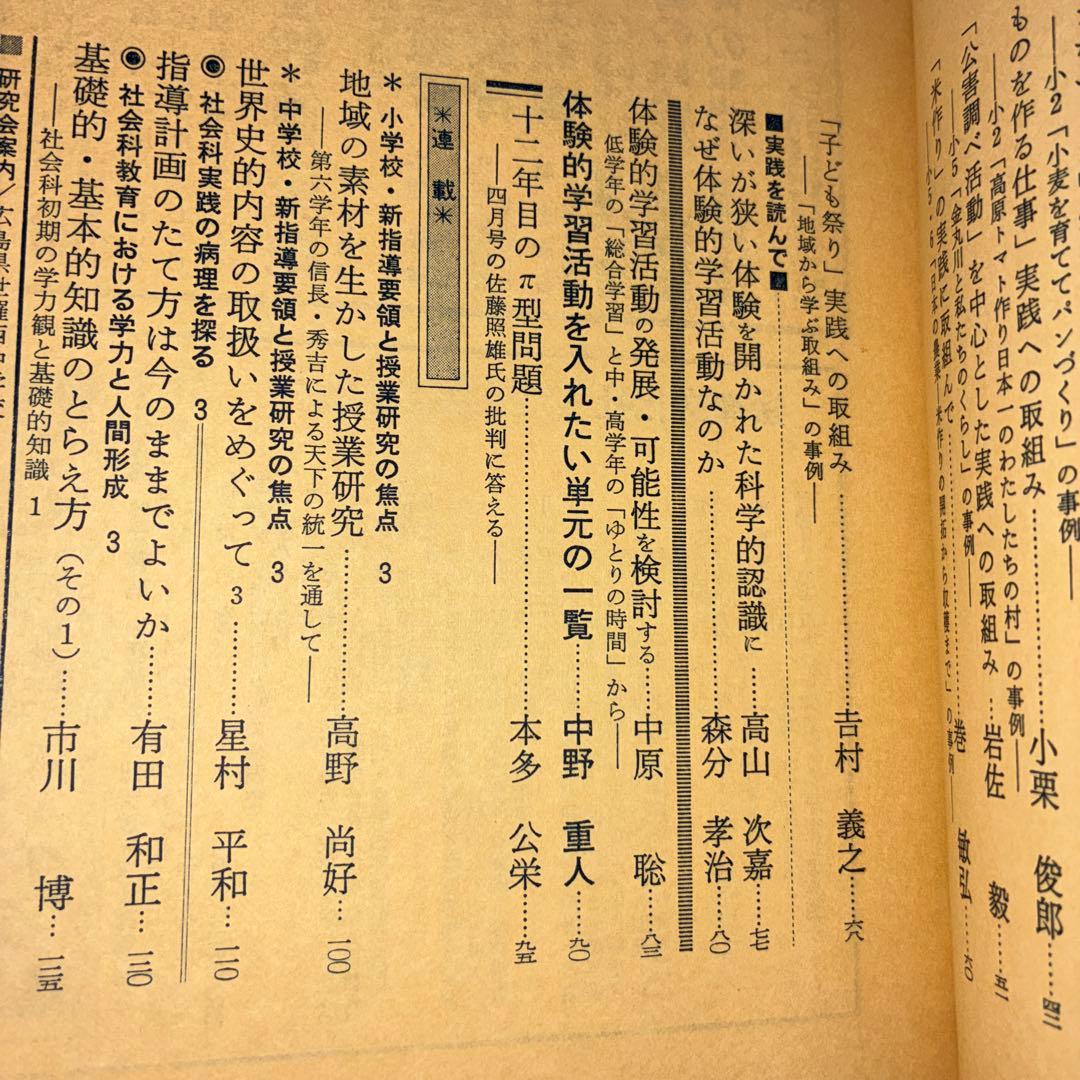 小2「小麦を育ててパンづくり」の事例――
小栗　俊郎……四三
ものを作る仕事」実践への取組み
――小2「高原トマト作り日本一のわたしたちの村」の事例――
「公害調べ活動」を中心とした実践への取組み…岩佐　毅……五一
――小5「金丸川と私たちのくらし」の事例――
「米作り」の実践に取組んで……巻　敏弘……六〇
――小5・6「日本の農業――米作りの開拓から収穫まで」の事例――
「子ども祭り」実践への取組み……吉村　義之…六八
――「地域から学ぶ取組み」の事例――
実践を読んで
深いが狭い体験を開かれた科学的認識に……高山　次嘉……七七
なぜ体験的学習活動なのか……森分　孝治……八〇
体験的学習活動の発展・可能性を検討する……中原　聡……八三
低学年の「総合学習」と中・高学年の「ゆとりの時間」から――
体験的学習活動を入れたい単元の一覧……中野　重人……九〇
十二年目のπ型問題……本多　公栄……九五
――四月号の佐藤照雄氏の批判に答える――
＊連　載＊
＊小学校・新指導要領と授業研究の焦点　3
地域の素材を生かした授業研究……高野　尚好…一〇〇
――第六学年の信長・秀吉による天下の統一を通して――
＊中学校・新指導要領と授業研究の焦点　3
世界史的内容の取扱いをめぐって　3……星村　平和…一一〇
◎社会科実践の病理を探る　3
指導計画のたて方は今のままでよいか……有田　和正…一二〇
◎社会科教育における学力と人間形成　3
基礎的・基本的知識のとらえ方（その1）……市川　博…一二五
――社会科初期の学力観と基礎的知識　1
■研究会案内／広島県世羅西中